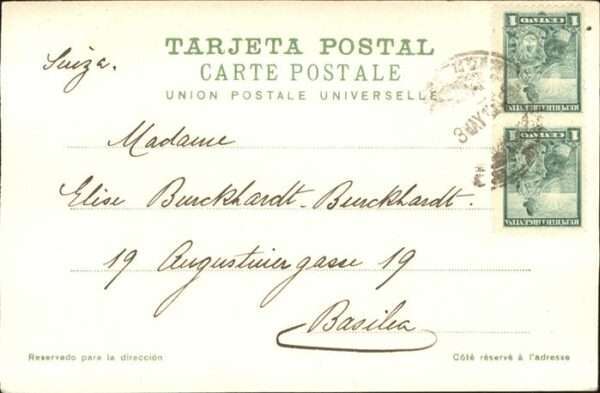 TARJETA POSTAL
CARTE POSTALE
UNION POSTALE UNIVERSELLE
Suiza.
Madame
Elise Burckhardt-Burckhardt.
19 Augustinergasse 19
Basilea
Reservado para la dirección
Côté réservé à l'adresse
1 CENTAVO 1
REPUBLICA ARGENTINA
1 CENTAVO 1
REPUBLICA ARGENTINA